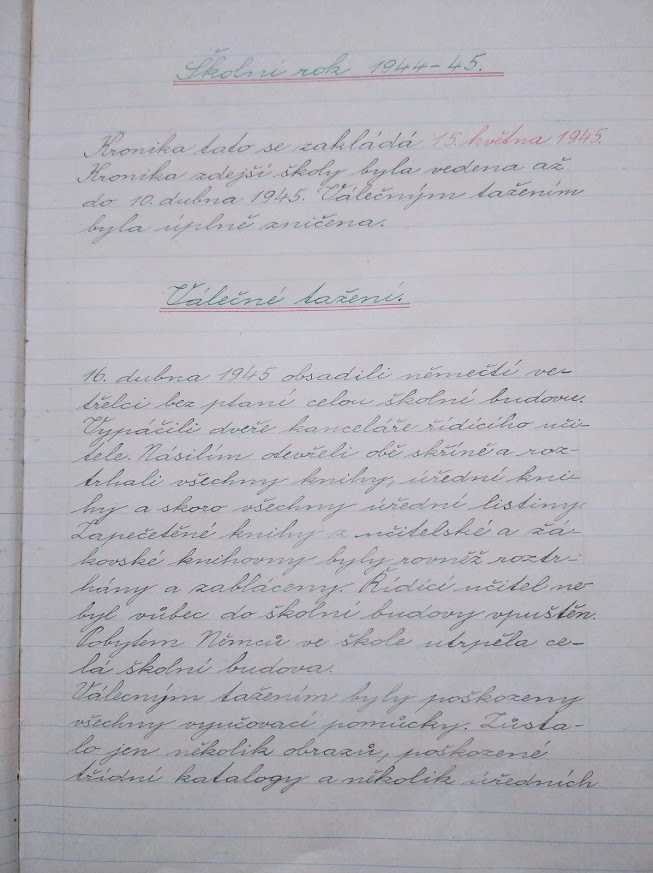 Školní rok 1944-45.
Kronika tato se zakládá 15. května 1945.
Kronika zdejší školy byla vedena až
do 10. dubna 1945. Válečným tažením
byla úplně zničena.
Válečné tažení.
16. dubna 1945 obsadili němečtí ve-
třelci bez ptaní celou školní budovu.
Vypáčili dveře kanceláře řídícího uči-
tele. Násilím otevřeli obě skříně a roz-
trhali všechny knihy, úřední kni-
hy a skoro všechny úřední listiny.
Zapečetěné knihy z učitelské a žá-
kovské knihovny byly rovněž roztr-
hány a zabláceny. Řídící učitel ne-
byl vůbec do školní budovy vpuštěn.
Pobytem Němců ve škole utrpěla ce-
lá školní budova.
Válecným tažením byly poškozeny
všechny vyučovací pomůcky. Zůsta-
lo jen několik obrazů, poškozené
třídní katalogy a několik úředních